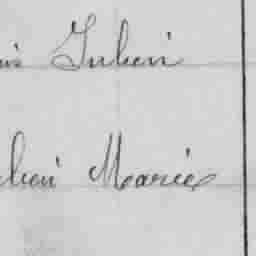 is Julien
lien Marie